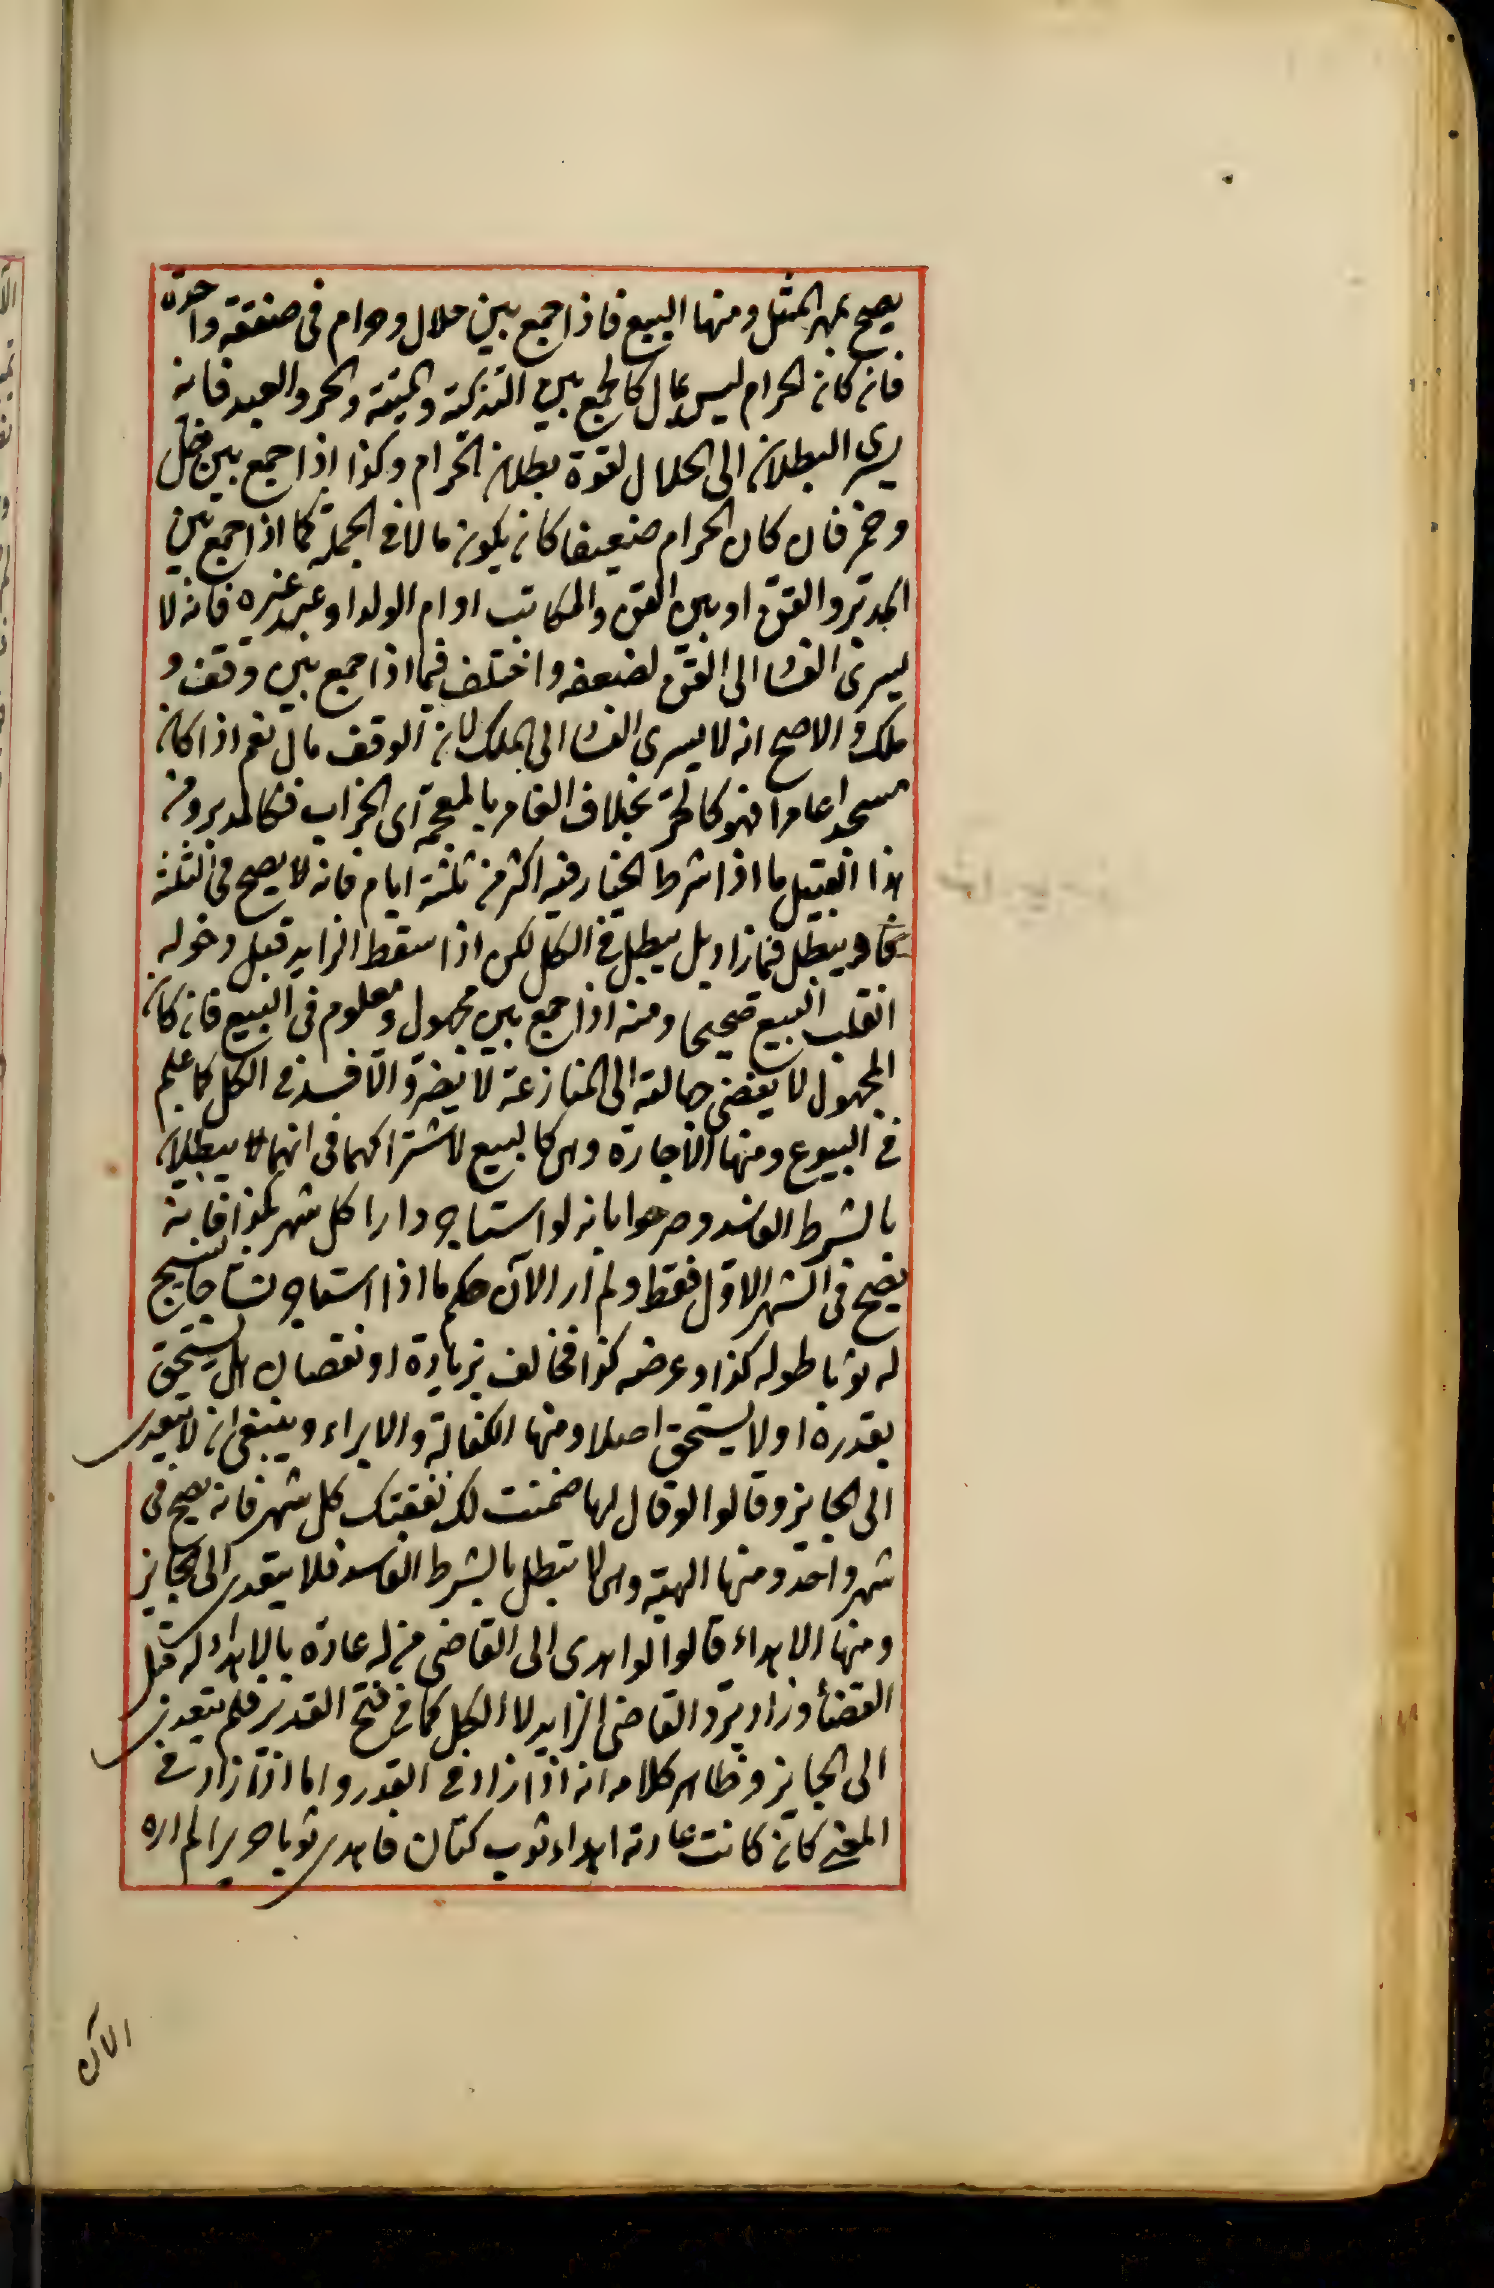 يصح بمهر المثل ومنها البيع فاذا جمع بين حلال وحرام فى صفقة واحدة
فان كان الحرام ليس بمال كالجمع بين التذكية والميتة والحر والعبد فانه
يسرى البطلان الى الحلال لقوة بطلان الحرام وكذا اذا جمع بين خل
وخمر فان كان الحرام ضعيفا كان يكون مالا فى الجملة كما اذا جمع بين
المدبر والقن او بين القن والمكاتب او ام الولد او عبد غيره فانه لا
يسرى الفساد الى القن لضعفه واختلف فيما اذا جمع بين وقف و
ملك والاصح انه لا يسرى الفساد الى الملك لان الوقف مال نعم اذا كان
مسجدا عامرا فهو كالحر بخلاف الغامر بالمعجمة اى الخراب فكالمدبر ومن
هذا القبيل ما اذا شرط الخيار فيه اكثر من ثلثة ايام فانه لا يصح فى الثلثة
ويبطل فيما زاد بل يبطل فى الكل لكن اذا سقط الزايد قبل دخوله
انقلب البيع صحيحا ومنه اذا جمع بين مجهول ومعلوم فى البيع فان كان
المجهول لا يفضى جهالته الى المنازعة لا يضر والا فسد فى الكل كما علم
فى البيوع ومنها الاجارة وهى كالبيع لاشتراكهما فى انهما يبطلان
بالشرط الفاسد وصرحوا بانه لو استاجر دارا كل شهر بكذا فانه
يصح فى الشهر الاول فقط ولم ار الآن حكم ما اذا استاجر نساجا لينسج
له ثوبا طوله كذا وعرضه كذا فخالف بزيادة او نقصان هل يستحق
بقدره او لا يستحق اصلا ومنها الكفالة والابراء وينبغى ان لا يتعدى
الى الجايز وقالوا لو قال لها ضمنت لك نفقتك كل شهر فانه يصح فى
شهر واحد ومنها الهبة وهى لا تبطل بالشرط الفاسد فلا يتعدى الى الجايز
ومنها الاهداء قالوا لو اهدى الى القاضى من له عادة بالاهداء له قبل
القضاء وزاد يرد القاضى الزايد لا الكل كما فى فتح القدير فلم يتعدى
الى الجايز وظاهر كلامه انه اذا زاد فى القدر واما اذا زاد فى
المعنى كان كانت عادته اهداء ثوب كتان فاهدى ثوبا حريرا لم اره
الآن